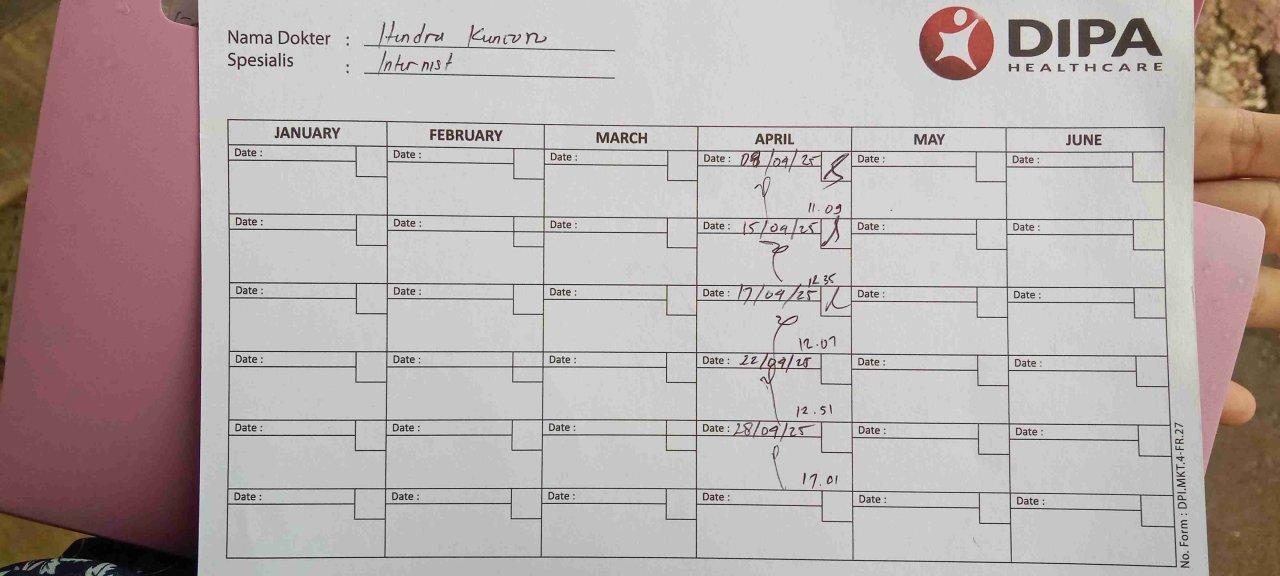 Nama Dokter : Hendra Kuncoro
Spesialis : Internist
DIPA
HEALTHCARE
JANUARY FEBRUARY MARCH APRIL MAY JUNE
Date : Date : Date : Date : 09/04/25 Date : Date :
11.09
Date : Date : Date : Date : 15/04/25 Date : Date :
12.35
Date : Date : Date : Date : 17/04/25 Date : Date :
12.07
Date : Date : Date : Date : 22/04/25 Date : Date :
12.51
Date : Date : Date : Date : 28/04/25 Date : Date :
17.01
Date : Date : Date : Date : Date : Date :
No. Form : DPI.MKT.4-FR.27